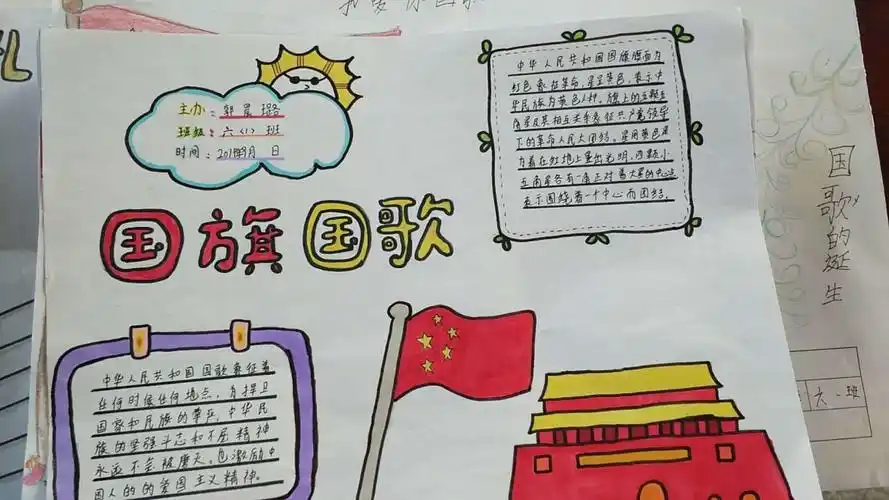 主办：郭晨璐
班级：六〈1〉班
时间：2019年9月 日
国旗国歌
中华人民共和国国旗旗面为
红色象征革命，星呈黄色，表示中
华民族为黄色人种。旗上的五颗五
角星及其相互关系象征共产党领导
下的革命人民大团结。星用黄色是
为着在红地上显出光明，四颗小
五角星各有一角正对着大星的中心点
表示围绕着一个中心而团结。
中华人民共和国国歌象征着
在任何时候任何地点，为捍卫
国家和民族的尊严，中华民
族的坚强斗志和不屈精神
永远不会被磨灭。也激励中
国人的的爱国主义精神。
国歌的诞生
六.一班